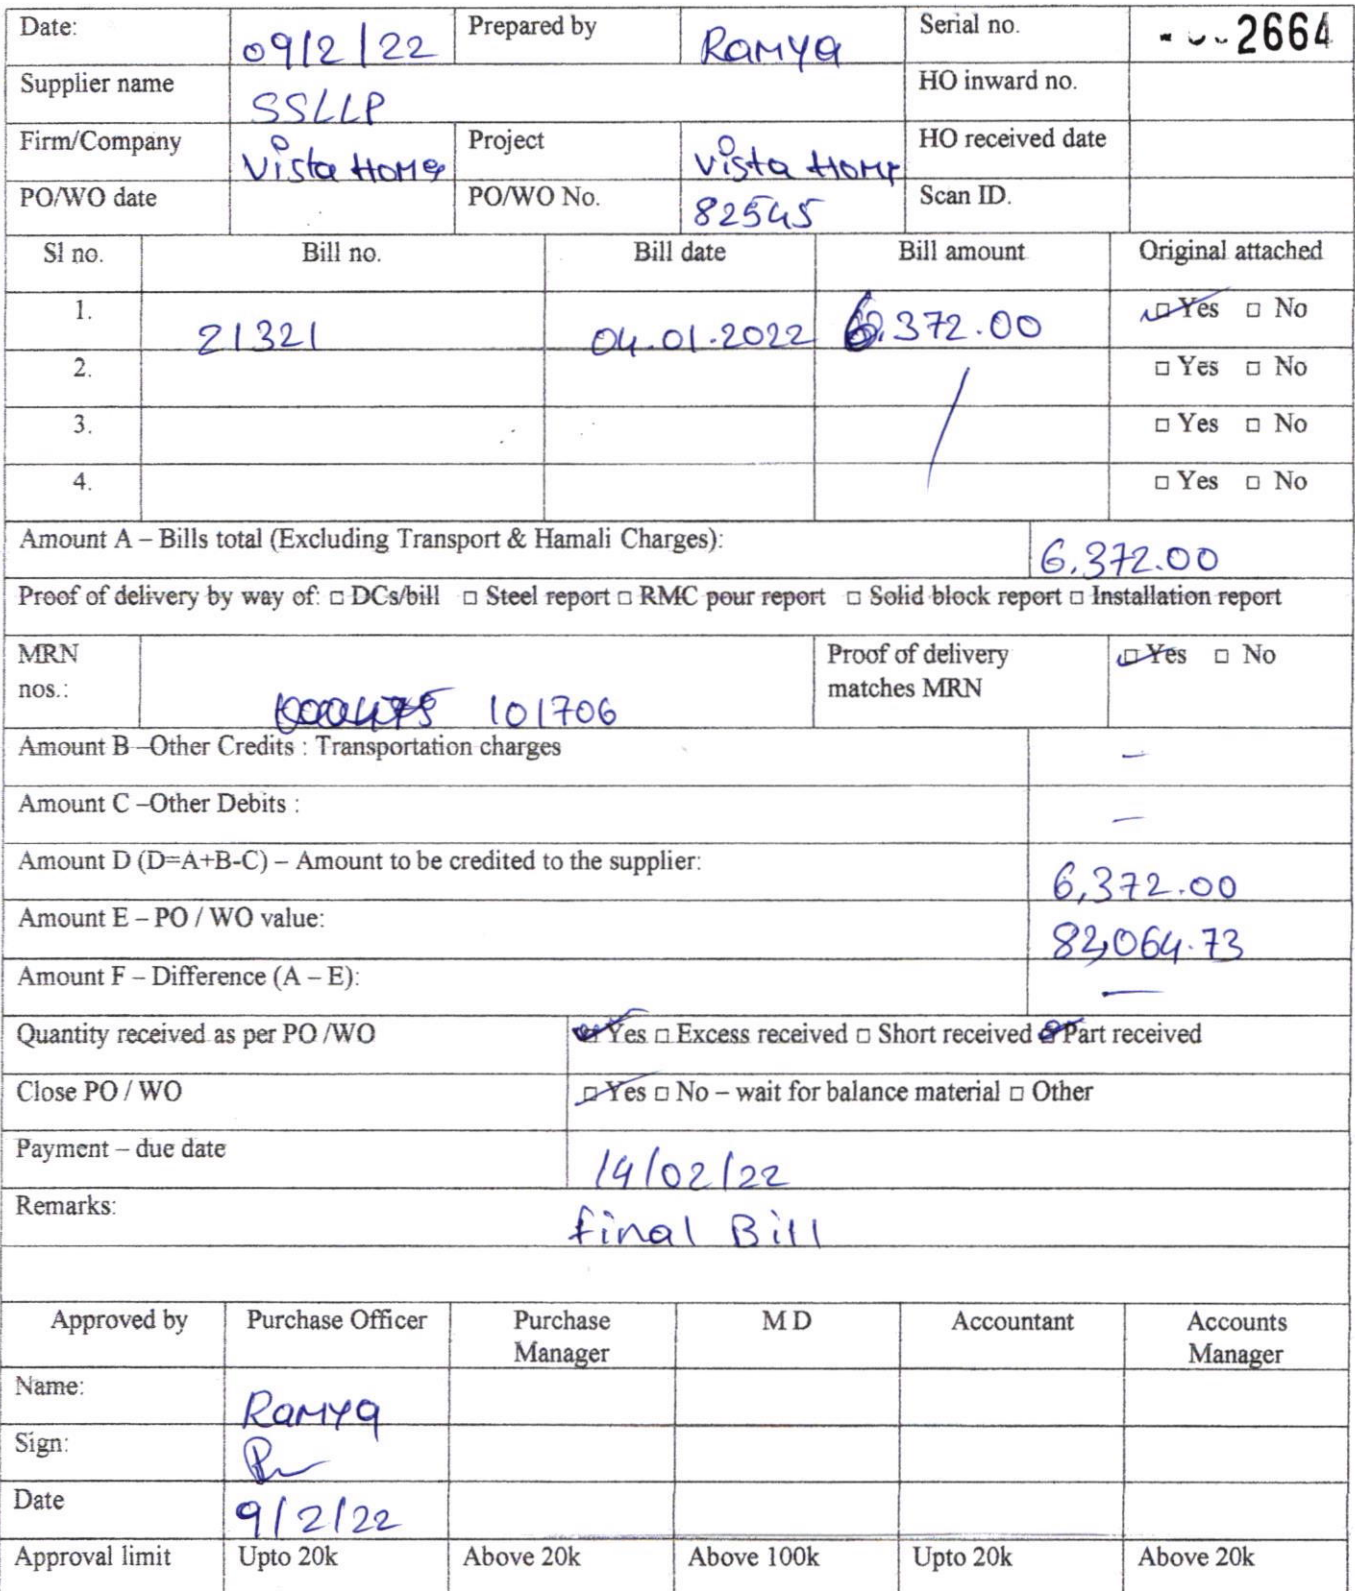 Date: 09/2/22 Prepared by Ramya Serial no. 2664
Supplier name SSLLP HO inward no.
Firm/Company Vista Home Project Vista Home HO received date
PO/WO date PO/WO No. 82545 Scan ID.
Sl no. Bill no. Bill date Bill amount Original attached
1. 21321 04.01.2022 6,372.00 □ Yes □ No
2. □ Yes □ No
3. □ Yes □ No
4. □ Yes □ No
Amount A – Bills total (Excluding Transport & Hamali Charges): 6,372.00
Proof of delivery by way of: □ DCs/bill □ Steel report □ RMC pour report □ Solid block report □ Installation report
MRN Proof of delivery □ Yes □ No
nos.: 101706 matches MRN
Amount B –Other Credits : Transportation charges –
Amount C –Other Debits : –
Amount D (D=A+B-C) – Amount to be credited to the supplier: 6,372.00
Amount E – PO / WO value: 82,064.73
Amount F – Difference (A – E): –
Quantity received as per PO /WO □ Yes □ Excess received □ Short received □ Part received
Close PO / WO □ Yes □ No – wait for balance material □ Other
Payment – due date 14/02/22
Remarks: final Bill
Approved by Purchase Officer Purchase M D Accountant Accounts
Manager Manager
Name: Ramya
Sign:
Date 9/2/22
Approval limit Upto 20k Above 20k Above 100k Upto 20k Above 20k